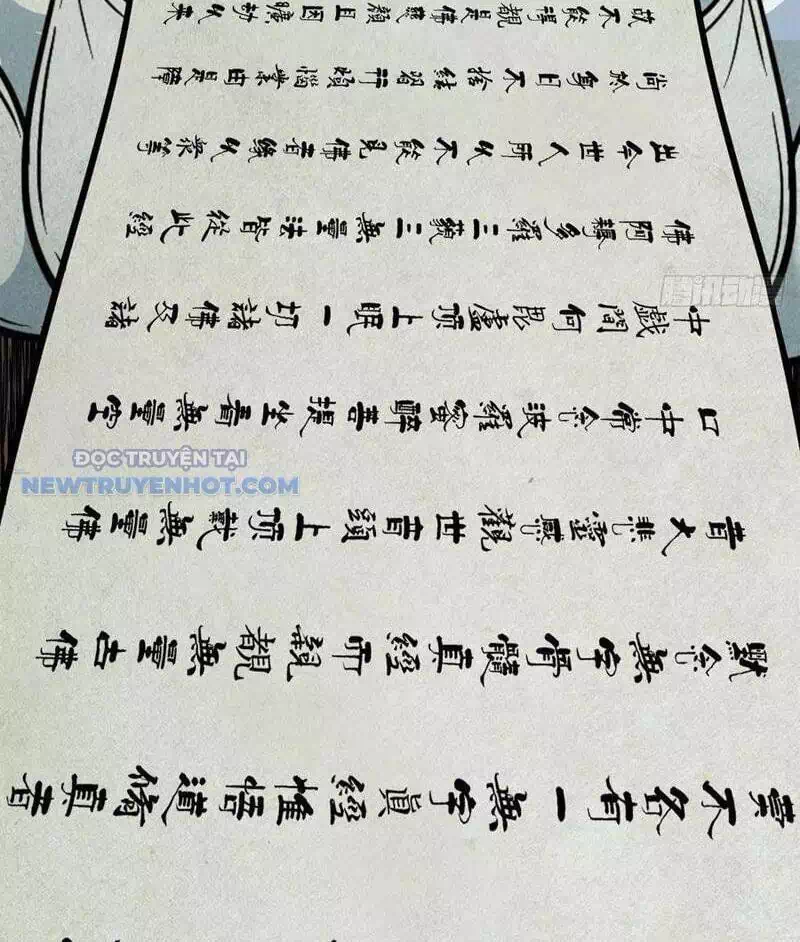 實不名有一無字眞經惟悟道脩真者
默念無字骨髓真經即親覩無量古佛
音大悲靈感觀世音頭上頂戴無量佛
口中常念波羅蜜醉菩提坐看無量空
中戲問何毘盧頂上眠一切諸佛及諸
佛阿耨多羅三藐三無量法皆從此經
出今世人所以不能見佛者緣以衆等
尚然每日不捨結習行煩惱業由是障
故不能得覩是佛慈顏且因曠劫以來
腾讯动漫
ĐỌC TRUYỆN TẠI
NEWTRUYENHOT.COM